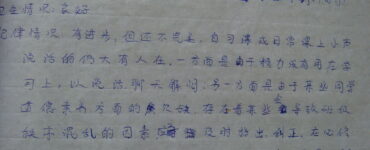 卫生情况: 良好
纪律情况: 有进步, 但还不完美, 自习课或日常课上小声
说话的仍大有人在, 一方面是由于精力没有用在学
习上, 以说话聊天解闷. 另一方面是由于某些同学
道德素养方面的欠缺, 存在着某些会导致班级
秩序混乱的因素 及时指出, 纠正, 在必修